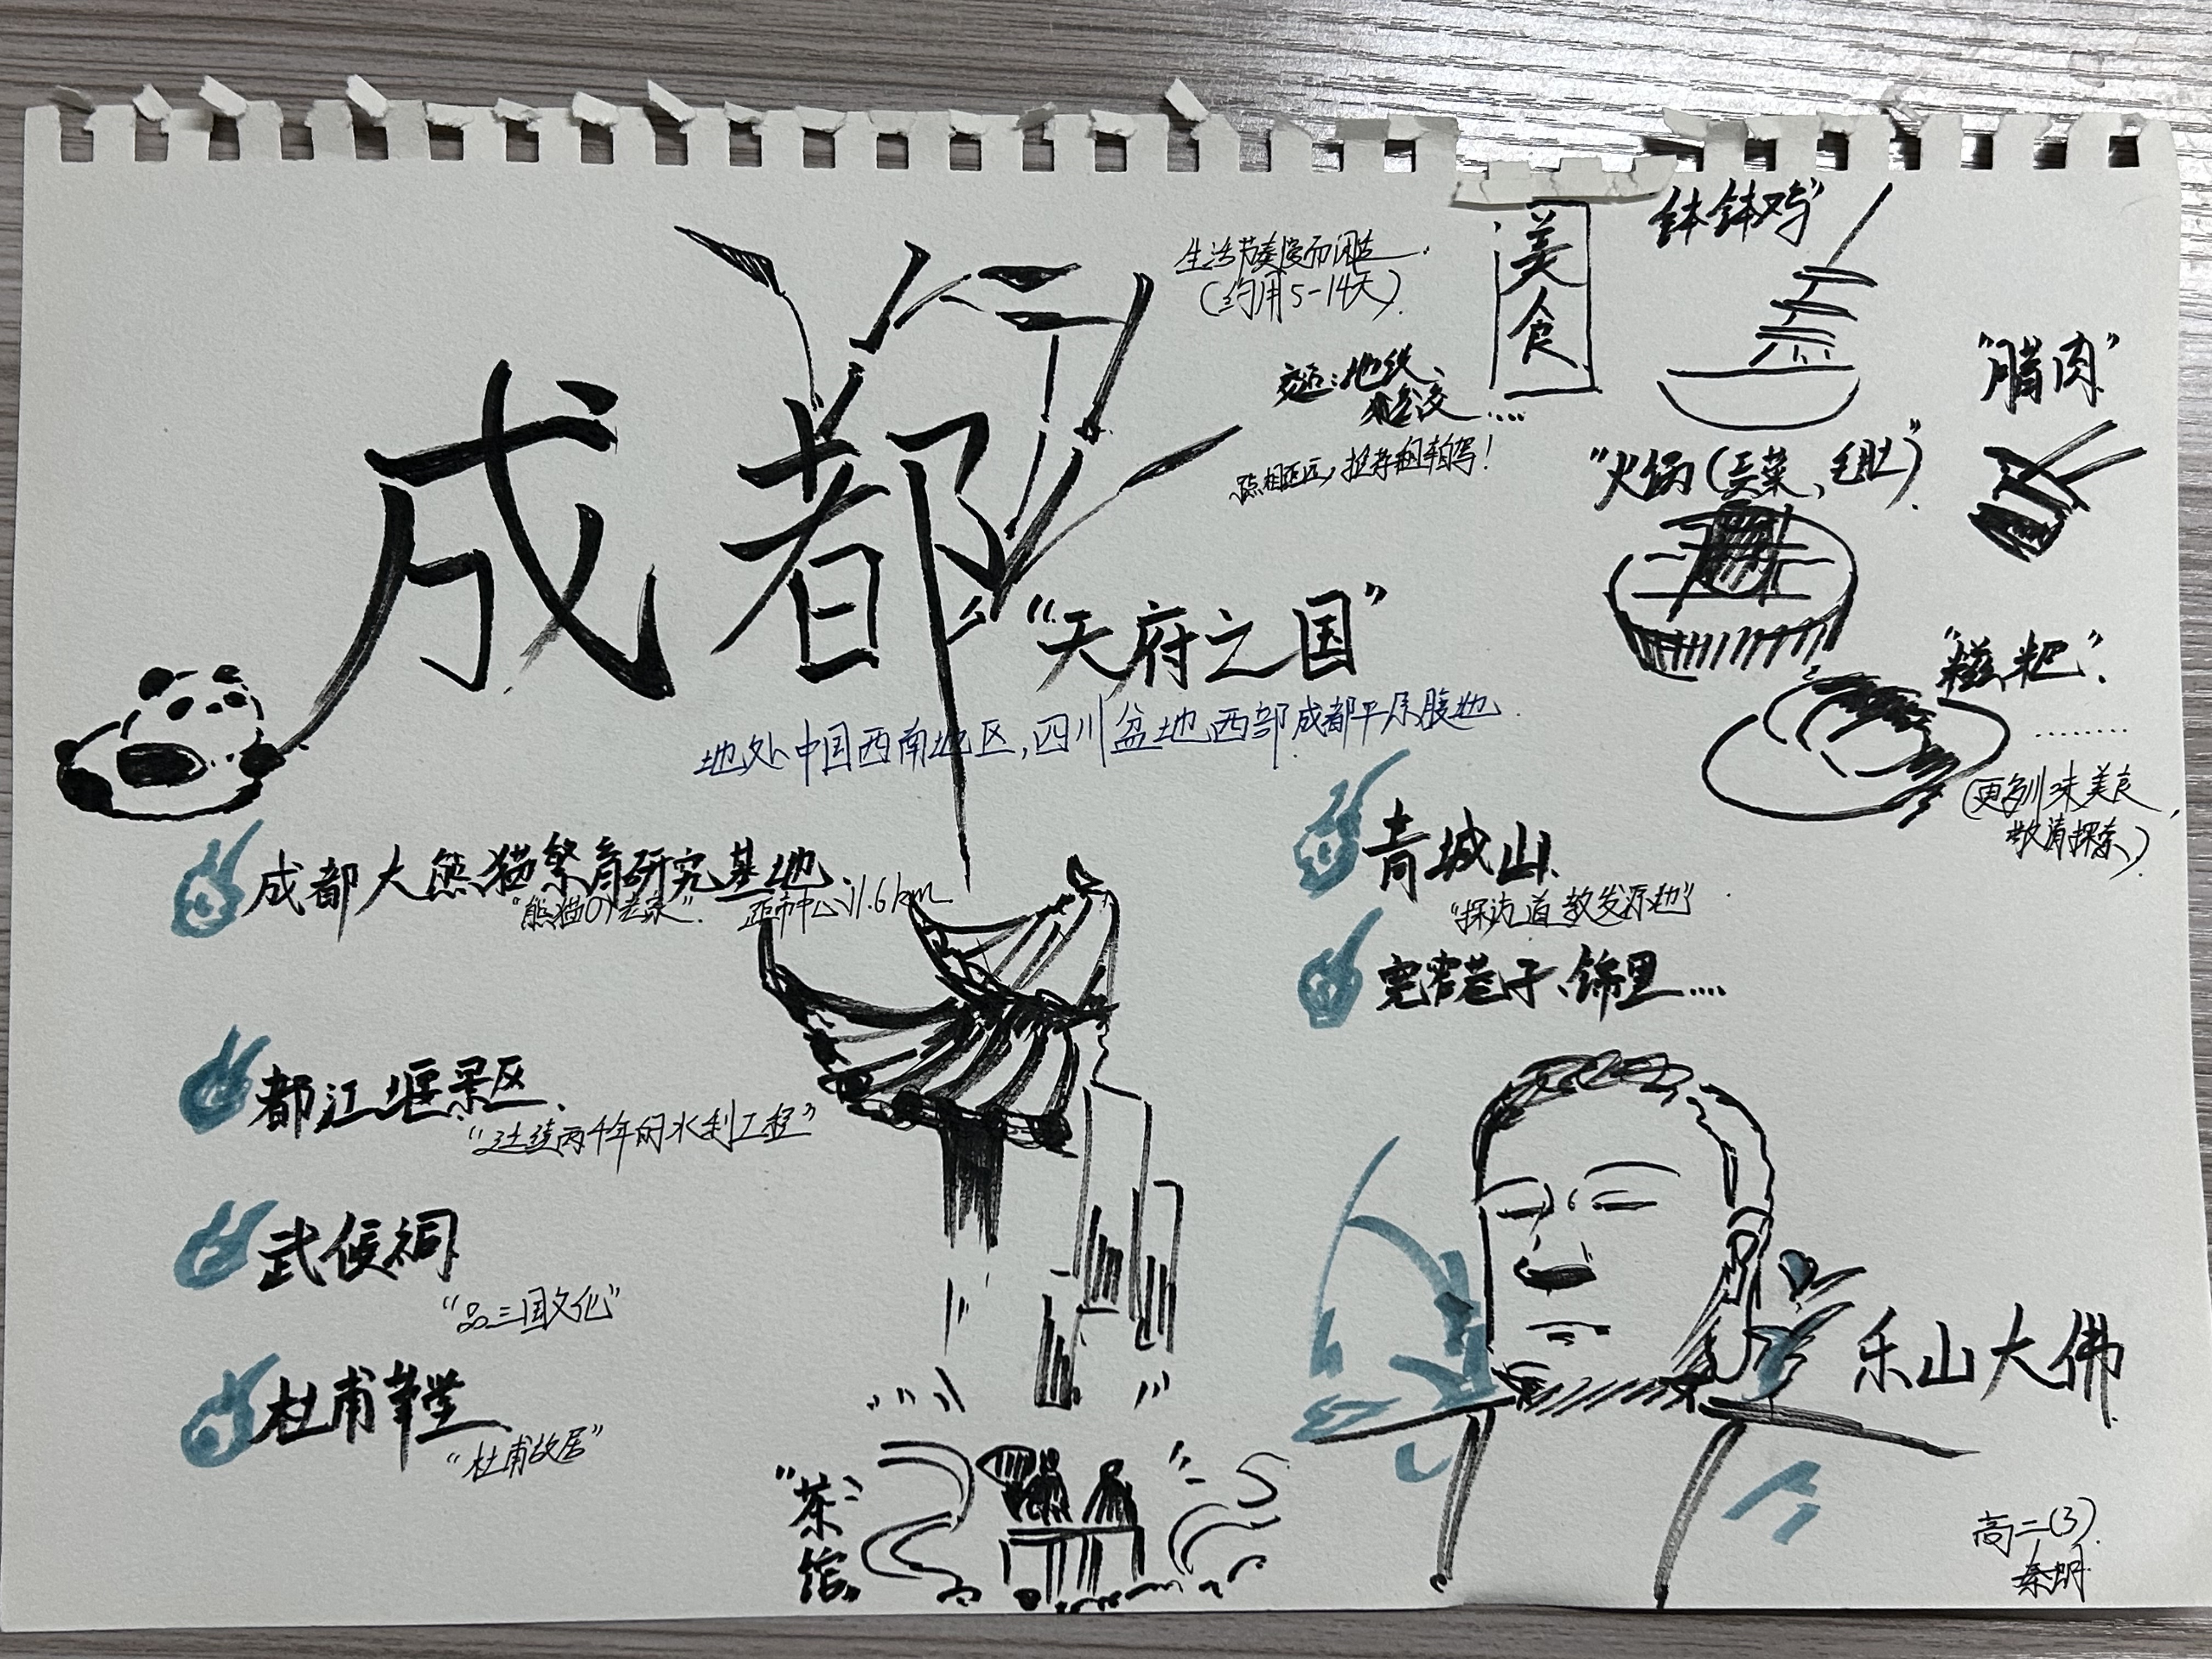 成都行
生活节奏慢而闲适
（约用5-14天）
交通：地铁、
公交……
美食
“钵钵鸡”
“腊肉”
“火锅（贡菜、毛肚）”
“糍粑”
………
（更多川味美食，
敬请探索）
“天府之国”
地处中国西南地区，四川盆地西部成都平原腹地.
成都大熊猫繁育研究基地
“熊猫の老家”. 距市中心11.6km
都江堰景区
“延续两千年的水利工程”
武侯祠
“品三国文化”
杜甫草堂
“杜甫故居”
青城山
“探访道教发源地”
宽窄巷子、锦里……
乐山大佛
“茶馆”
高二（3）
秦明